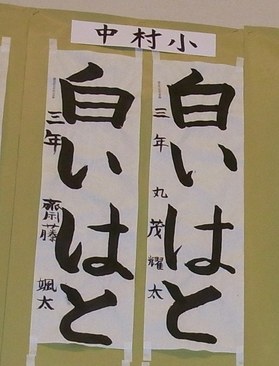 中村小
白いはと
三年 丸茂耀太
白いはと
三年 齋藤颯太